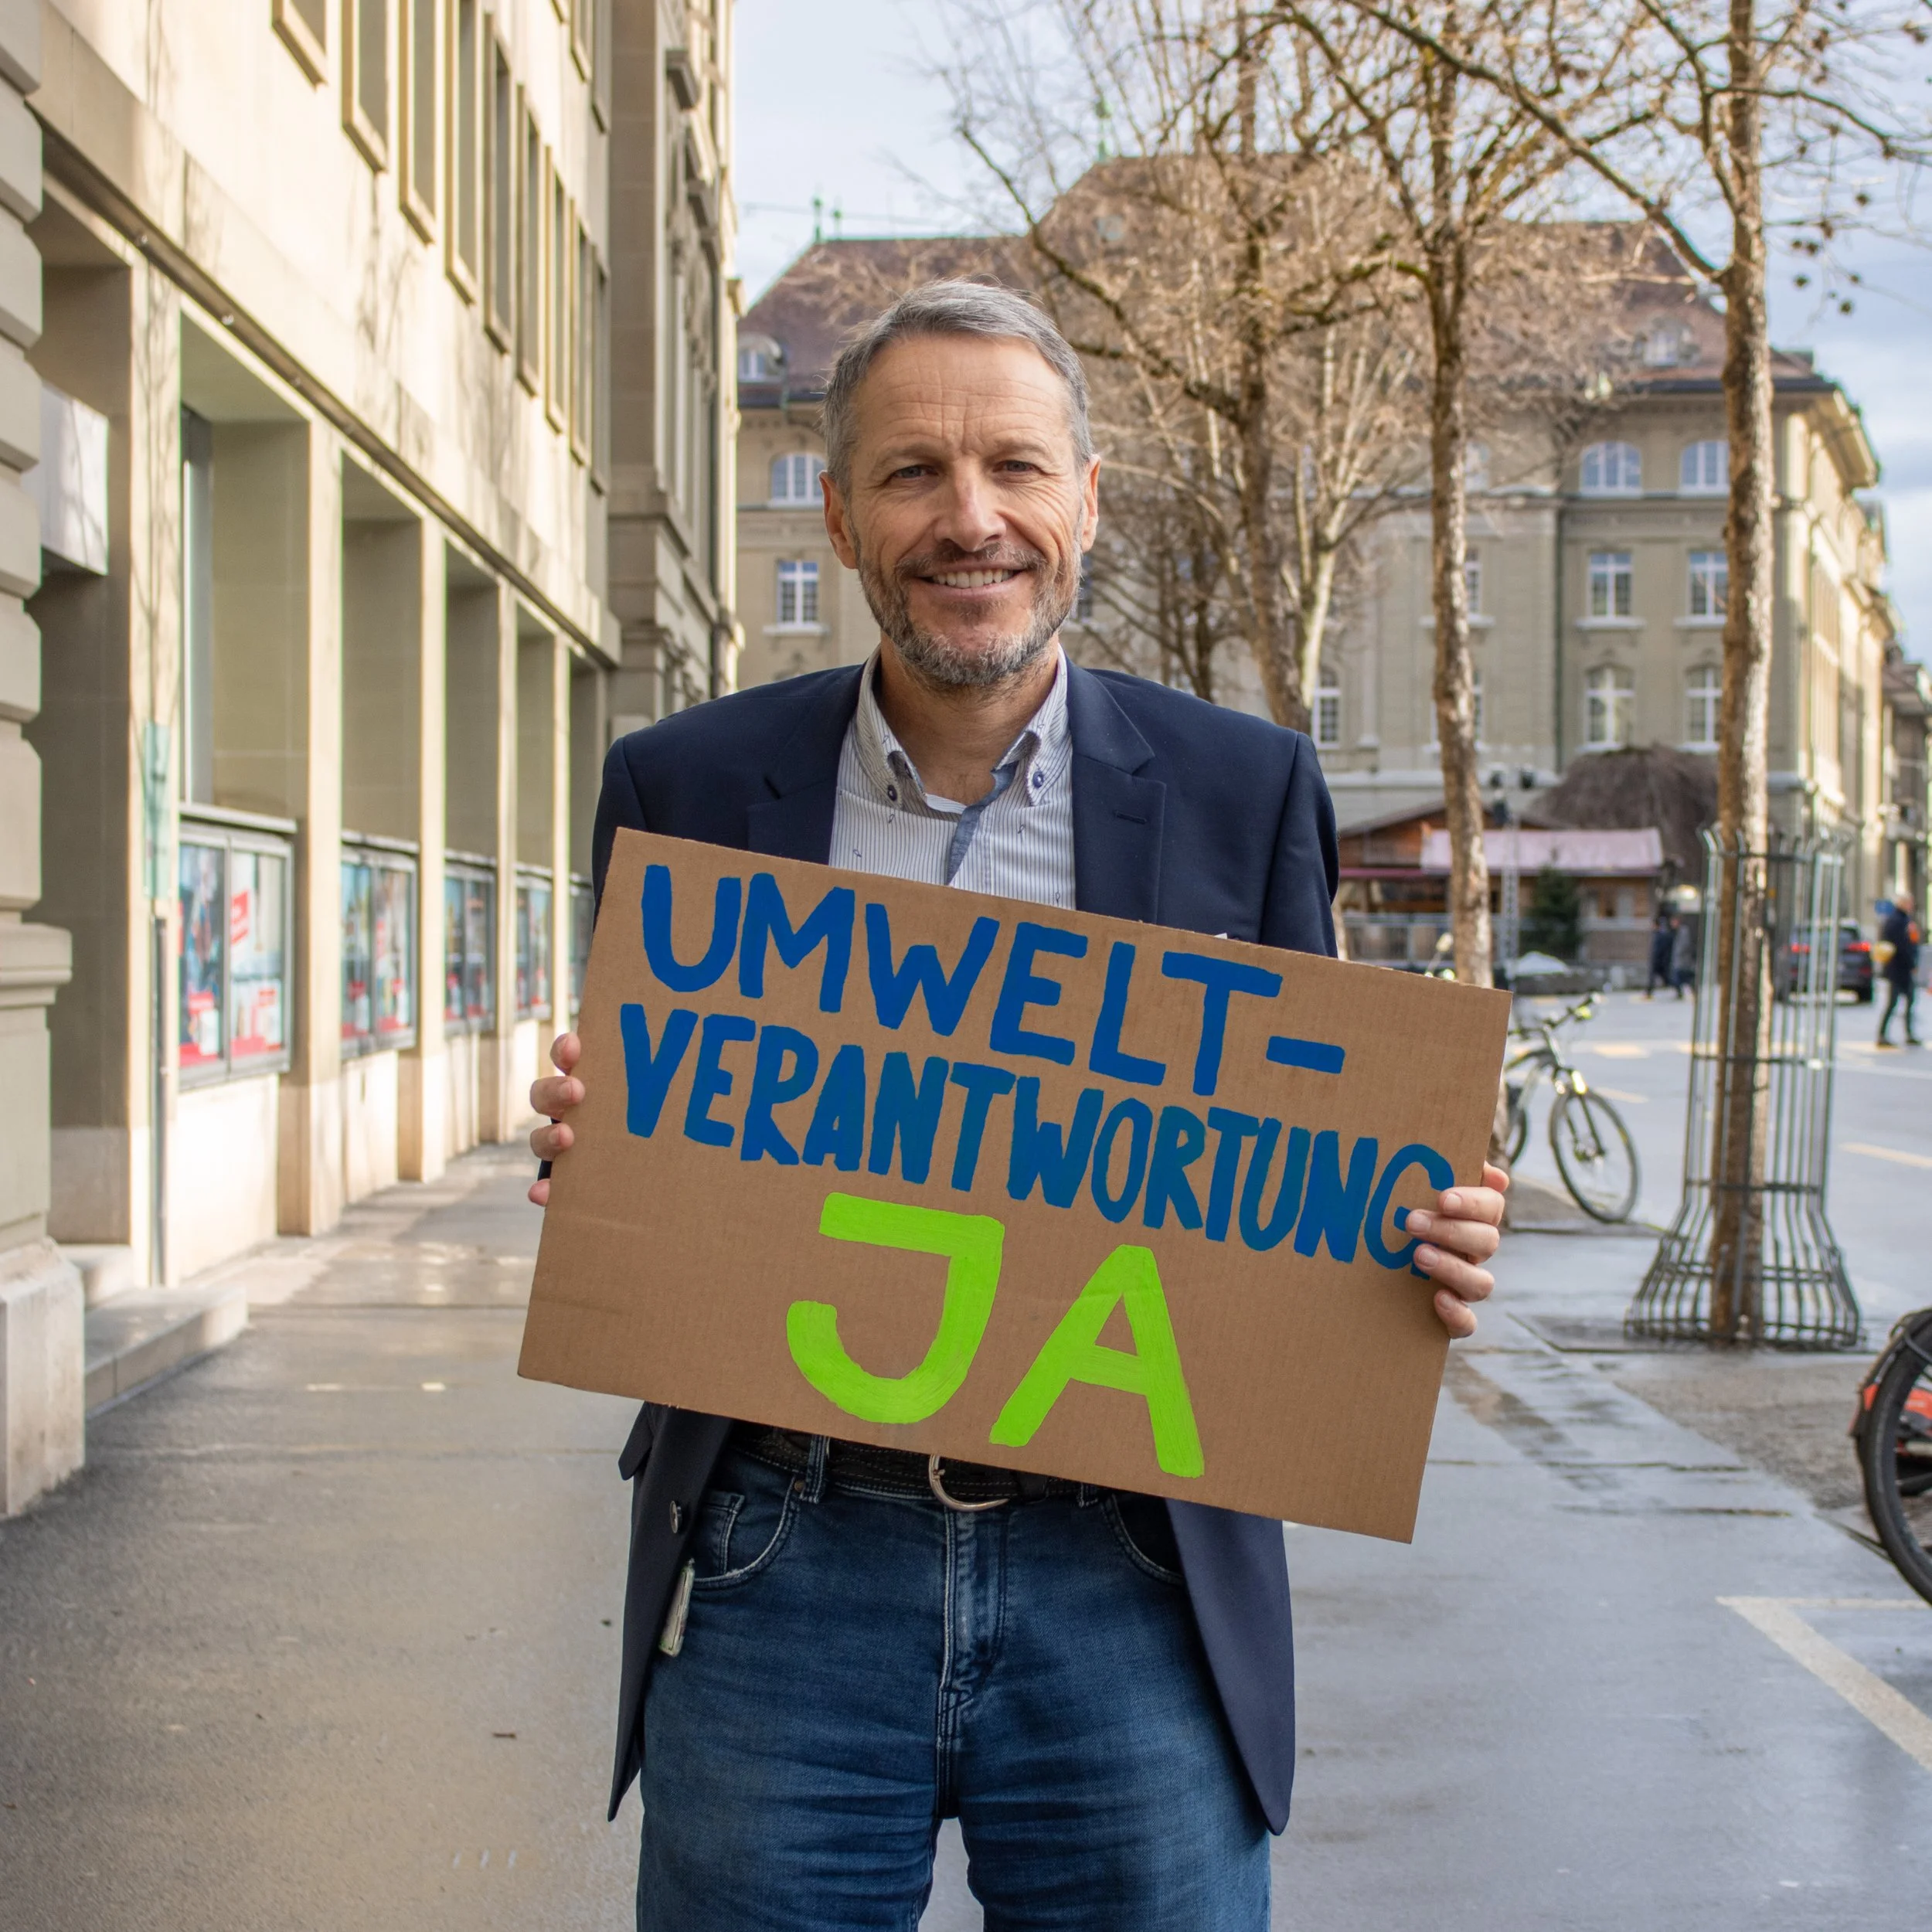 UMWELT-
VERANTWORTUNG
JA